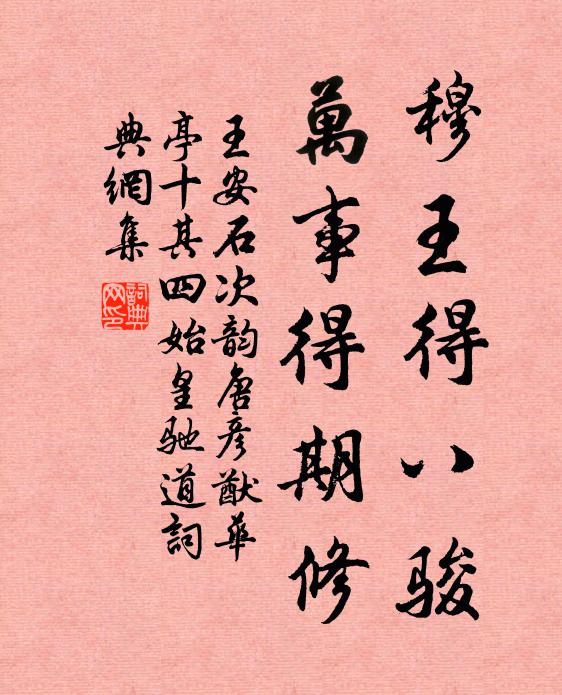 穆王得八骏
萬事得期修
王安石次韵唐彦猷華
亭十其四始皇驰道詞
典網集
詞典
网印